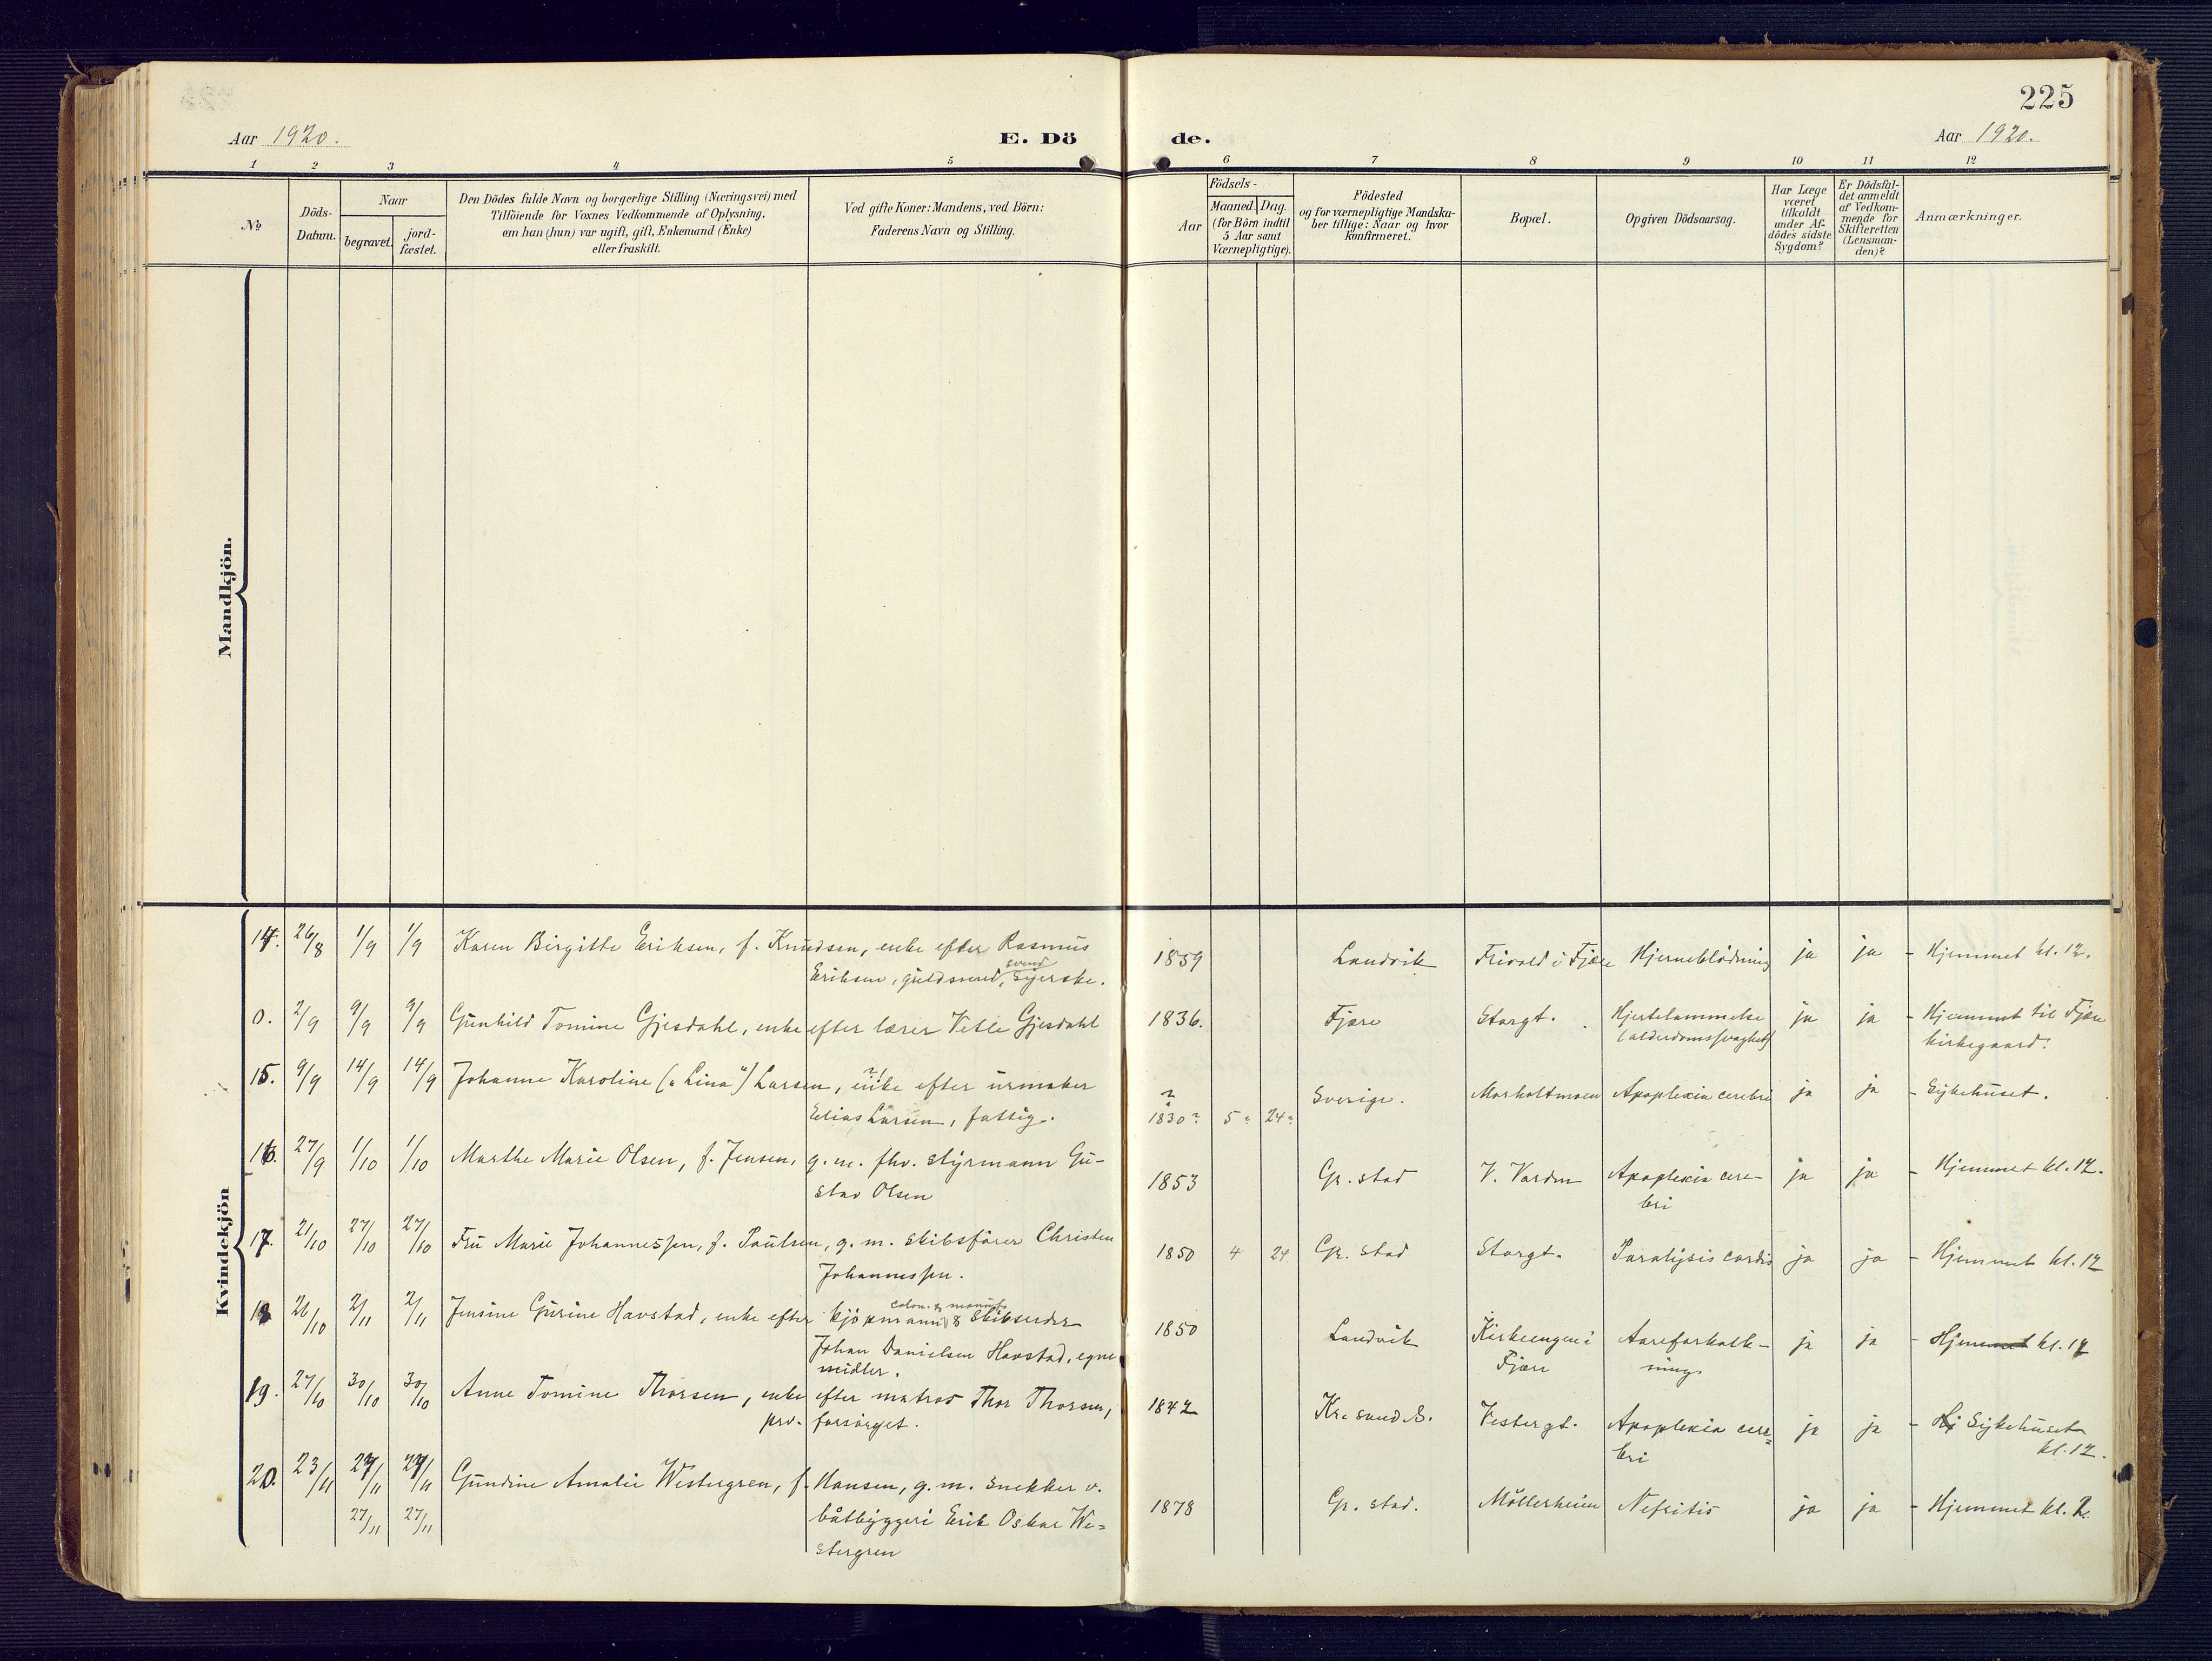 225
Aar 1920.
E. Dö
de.
Aar 1920.
1 2 3 4 5 6 7 8 9 10 11 12
No
Döds-
Datum.
Naar
begravet.
jord-
fæstet.
Den Dödes fulde Navn og borgerlige Stilling (Næringsvei) med
Tilföiende for Voxnes Vedkommende af Oplysning,
om han (hun) var ugift, gift, Enkemand (Enke)
eller fraskilt.
Ved gifte Koner: Mandens, ved Börn:
Faderens Navn og Stilling.
Aar
Födsels-
Maaned.
Dag.
(for Börn indtil
5 Aar samt
Værnepligtige).
Födested
og for værnepligtige Mandska-
ber tillige: Naar og hvor
konfirmeret.
Bopæl.
Opgiven Dödsaarsag.
Har Læge
været
tilkaldt
under Af-
dödes sidste
Sygdom?
Er Dödsfal-
det anmeldt
af Vedkom-
mende for
Skifteretten
(Lensman-
den)?
Anmærkninger.
Mandkjön.
Kvindekjön
14. 26/8 1/9 1/9 Karen Birgitte Eriksen, f. Knudsen, enke efter Rasmus
svend
Eriksen, guldsmed, syerske.
1859 Landvik Frivold i Fjære Hjerneblödning ja ja - Hjemmet kl. 12.
0. 2/9 9/9 9/9 Gunhild Tomine Gjesdahl, enke efter lærer Vetle Gjesdahl
1836. Fjære Storgt. Hjertelammelse ja ja - Hjemmet til Fjære
(alderdomssvaghet)
kirkegaard.
15. 9/9 14/9 14/9 Johanne Karoline ("Lina") Larsen, enke efter urmaker
Elias Larsen, fattig.
1830? 5? 24? Sverige. Morholtmoen Apoplexia cerebri ja ja - Sykehuset.
16. 27/9 1/10 1/10 Marthe Marie Olsen, f. Jensen, g. m. fhv. styrmann Gu-
stav Olsen
1853 Gr. stad V. Varden Apoplexia cere- ja ja - Hjemmet kl. 12.
bri
17. 21/10 27/10 27/10 Fru Marie Johannessen, f. Paulsen, g. m. skibsfører Christen
Johannessen.
1850 4 24 Gr. stad Storgt. Paralysis cordis ja ja - Hjemmet kl. 12
18 26/10 2/11 2/11 Jensine Gurine Havstad, enke efter kjöpmann & skibsreder
Johan Danielsen Havstad, egne
midler.
1850 Landvik Kirkeengen i Aareforkalk- ja ja - Hjemmet kl. 12
Fjære
ning
19. 27/10 30/10 30/10 Anne Tomine Thorsen, enke efter matros Thor Thorsen,
prv. forsörget.
1842 Kr.sand S. Vestergt. Apoplexia cere- ja ja - Hj Sykehuset
bri
kl. 12.
20. 23/11 Gundine Amalie Westergren, f. Hansen, g. m. snekker v.
27/11 27/11
båtbyggeri Erik Oskar We-
stergren
1878 Gr. stad. Möllerheien Nefritis ja ja - Hjemmet kl. 2.